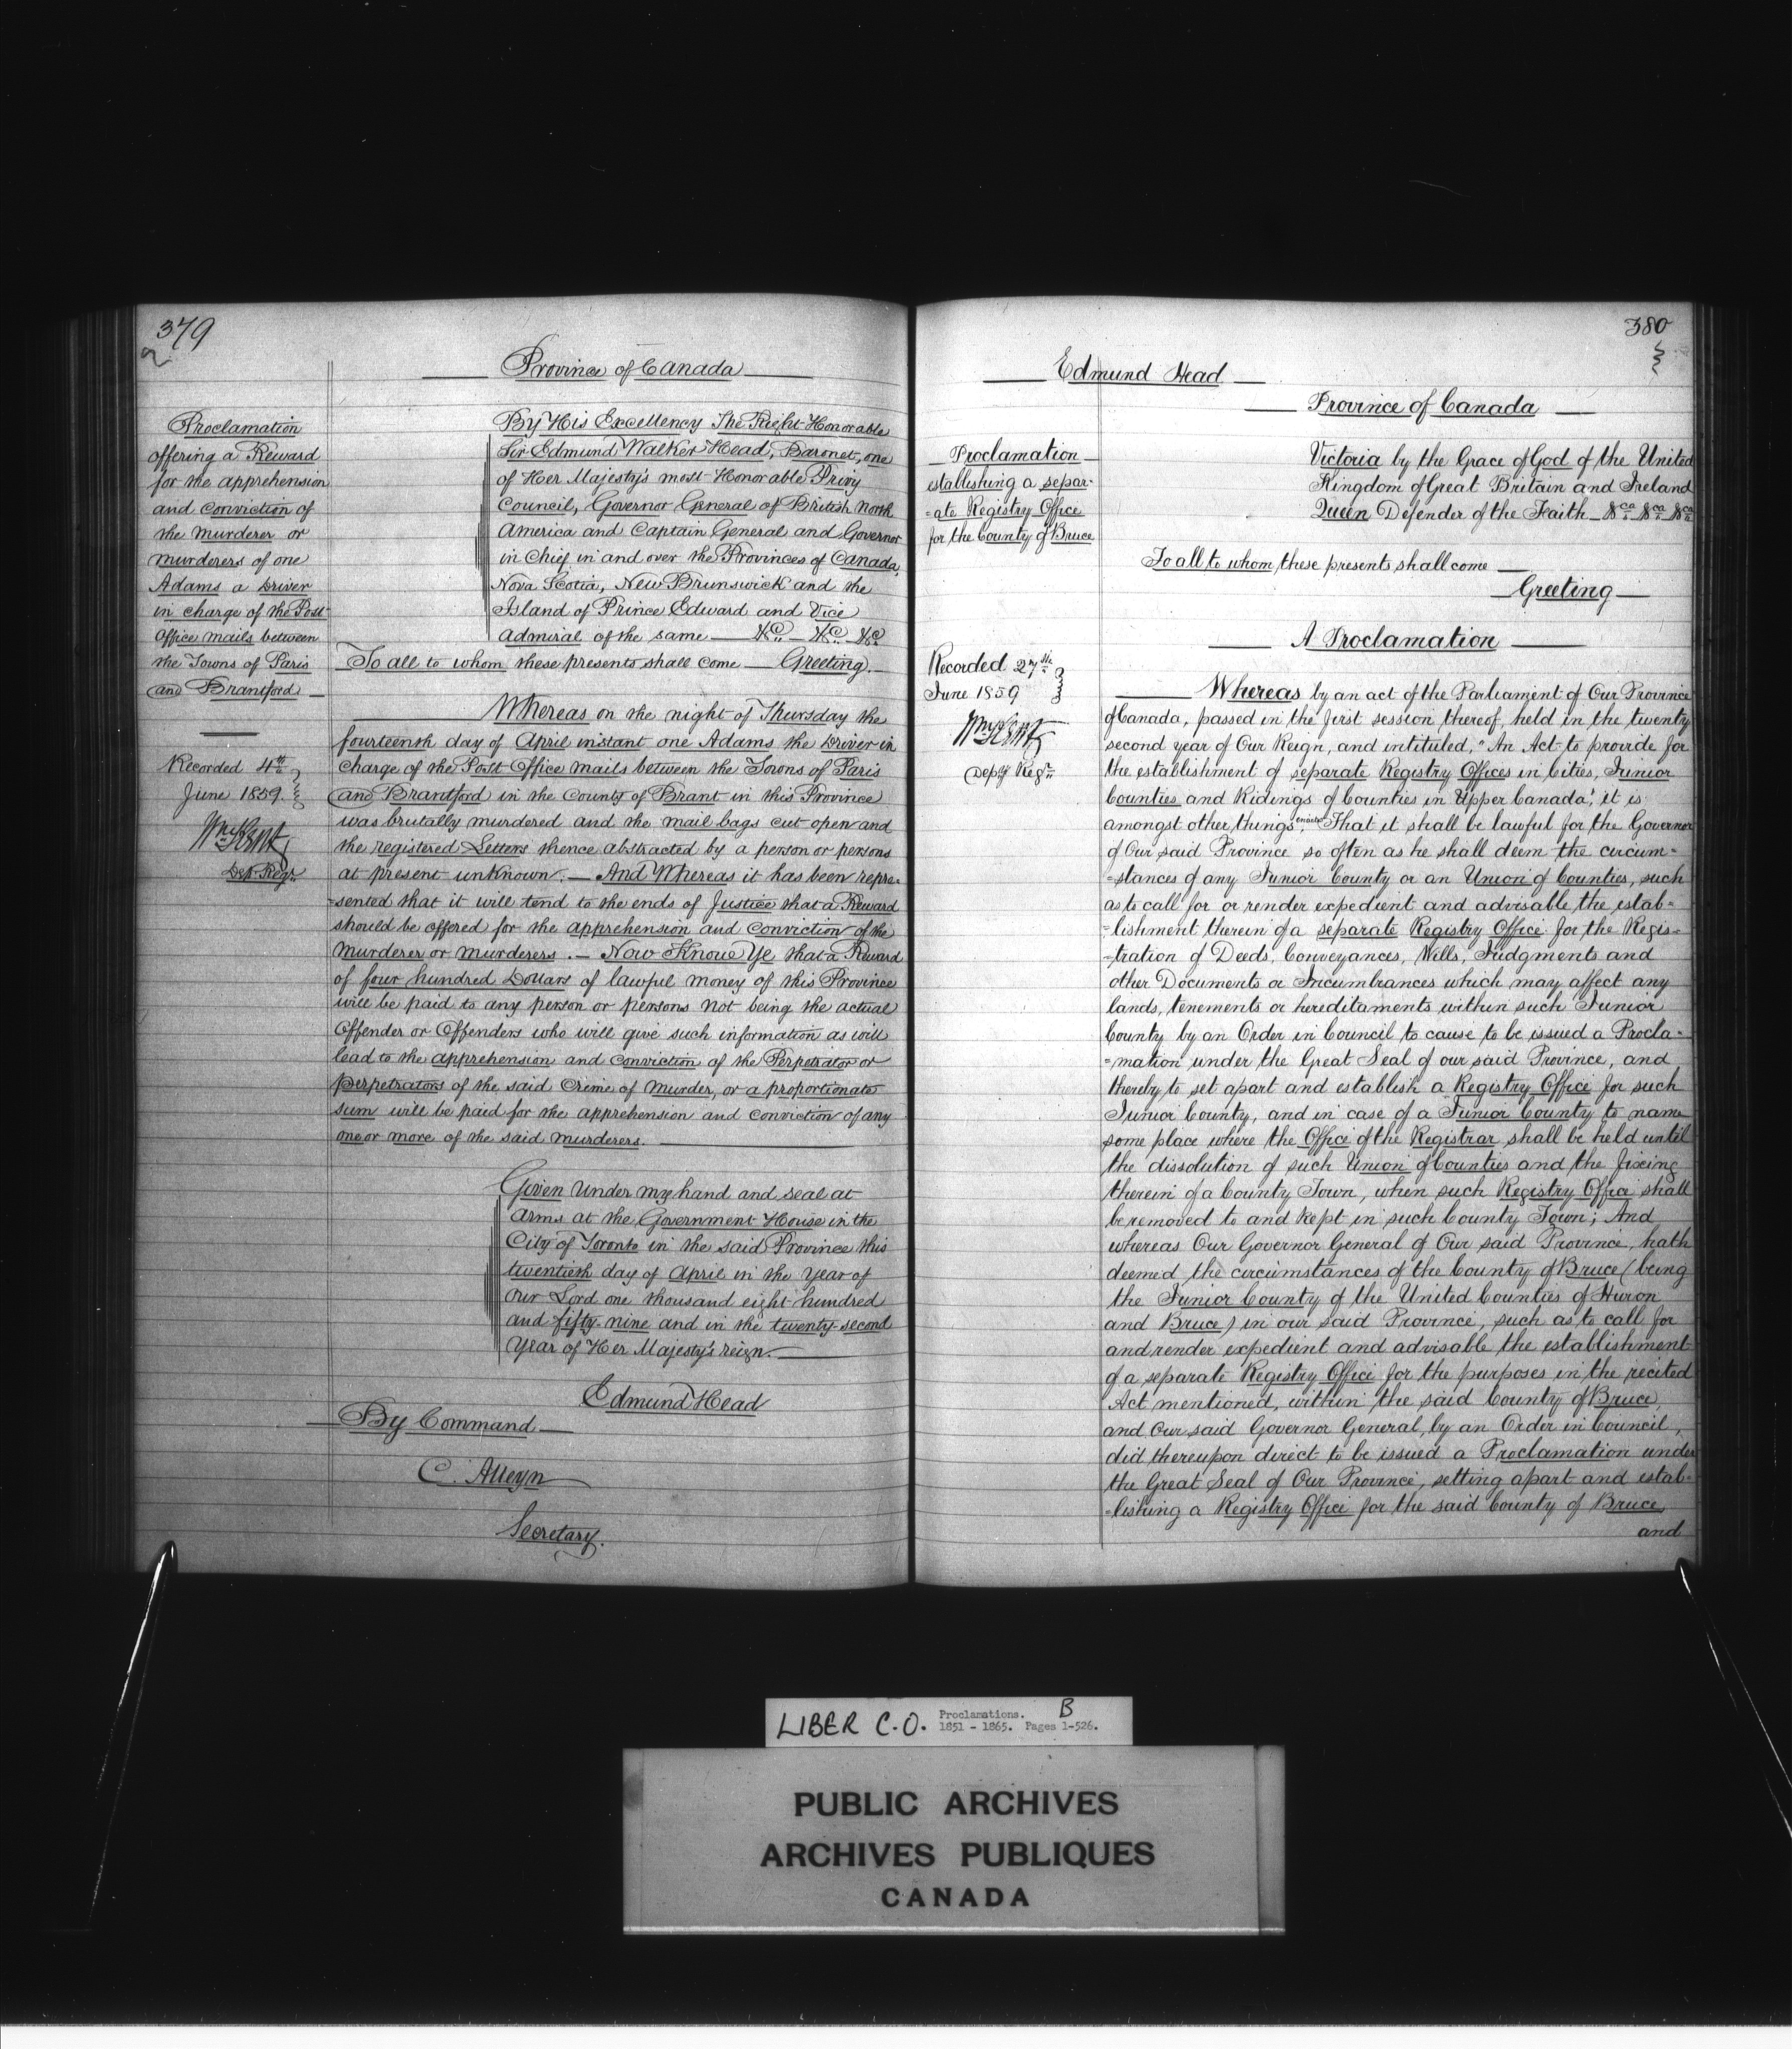 379
Province of Canada
Proclamation
offering a Reward
for the apprehension
and conviction of
the murderer or
murderers of one
Adams a Driver
in charge of the Post
Office mails between
the Towns of Paris
and Brantford
Recorded 4th
June 1859.
Wm Kent
Dep. Regr.
By His Excellency The Right Honorable
Sir Edmund Walker Head, Baronet, one
of Her Majesty's most Honorable Privy
Council, Governor General of British North
America and Captain General and Governor
in Chief in and over the Provinces of Canada,
Nova Scotia, New Brunswick and the
Island of Prince Edward and Vice
Admiral of the same — &c. — &c. &c.
To all to whom these presents shall come — Greeting.
Whereas on the night of Thursday the
fourteenth day of April instant one Adams the Driver in
charge of the Post Office mails between the Towns of Paris
and Brantford in the County of Brant in this Province
was brutally murdered and the mail bags cut open and
the registered Letters thence abstracted by a person or persons
at present unknown. — And Whereas it has been repre-
-sented that it will tend to the ends of Justice that a Reward
should be offered for the apprehension and conviction of the
murderer or murderers. — Now Know Ye that a Reward
of four hundred Dollars of lawful money of this Province
will be paid to any person or persons not being the actual
Offender or Offenders who will give such information as will
lead to the apprehension and conviction of the Perpetrator or
perpetrators of the said Crime of Murder, or a proportionate
sum will be paid for the apprehension and conviction of any
one or more of the said murderers.
Given under my hand and seal at
Arms at the Government House in the
City of Toronto in the said Province this
twentieth day of April in the year of
our Lord one thousand eight hundred
and fifty-nine and in the twenty-second
Year of Her Majesty's reign.
Edmund Head
By Command
C. Alleyn
Secretary.
380
Edmund Head
Province of Canada
Proclamation
establishing a separ-
=ate Registry Office
for the County of Bruce
Recorded 27th
June 1859
Wm Kent
Depy Regr.
Victoria by the Grace of God of the United
Kingdom of Great Britain and Ireland
Queen Defender of the Faith — &ca &ca &ca
To all to whom these presents shall come —
Greeting —
A Proclamation
Whereas by an act of the Parliament of Our Province
of Canada, passed in the first session thereof, held in the twenty
second year of Our Reign, and intituled, "An Act to provide for
the establishment of separate Registry Offices in Cities, Junior
Counties and Ridings of Counties in Upper Canada", it is
amongst other things enacted "That it shall be lawful for the Governor
of Our said Province so often as he shall deem the circum=
=stances of any Junior County or an Union of Counties, such
as to call for or render expedient and advisable the estab=
=lishment therein of a separate Registry Office for the Regis=
=tration of Deeds, Conveyances, Wills, Judgments and
other Documents or Incumbrances which may affect any
lands, tenements or hereditaments within such Junior
County by an Order in Council to cause to be issued a Procla=
=mation under the Great Seal of our said Province, and
thereby to set apart and establish a Registry Office for such
Junior County, and in case of a Junior County to name
some place where the Office of the Registrar shall be held until
the dissolution of such Union of Counties and the fixing
therein of a County Town, when such Registry Office shall
be removed to and kept in such County Town; And
whereas Our Governor General of Our said Province, hath
deemed the circumstances of the County of Bruce (being
the Junior County of the United Counties of Huron
and Bruce) in our said Province, such as to call for
and render expedient and advisable the establishment
of a separate Registry Office for the purposes in the recited
Act mentioned, within the said County of Bruce,
and Our said Governor General, by an Order in Council,
did thereupon direct to be issued a Proclamation under
the Great Seal of Our Province, setting apart and estab=
=lishing a Registry Office for the said County of Bruce
and
LIBER C.O. Proclamations. B
1851 - 1865. Pages 1-526.
PUBLIC ARCHIVES
ARCHIVES PUBLIQUES
CANADA